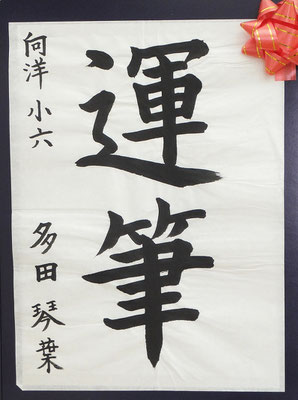 運筆
向洋小六
多田琴葉